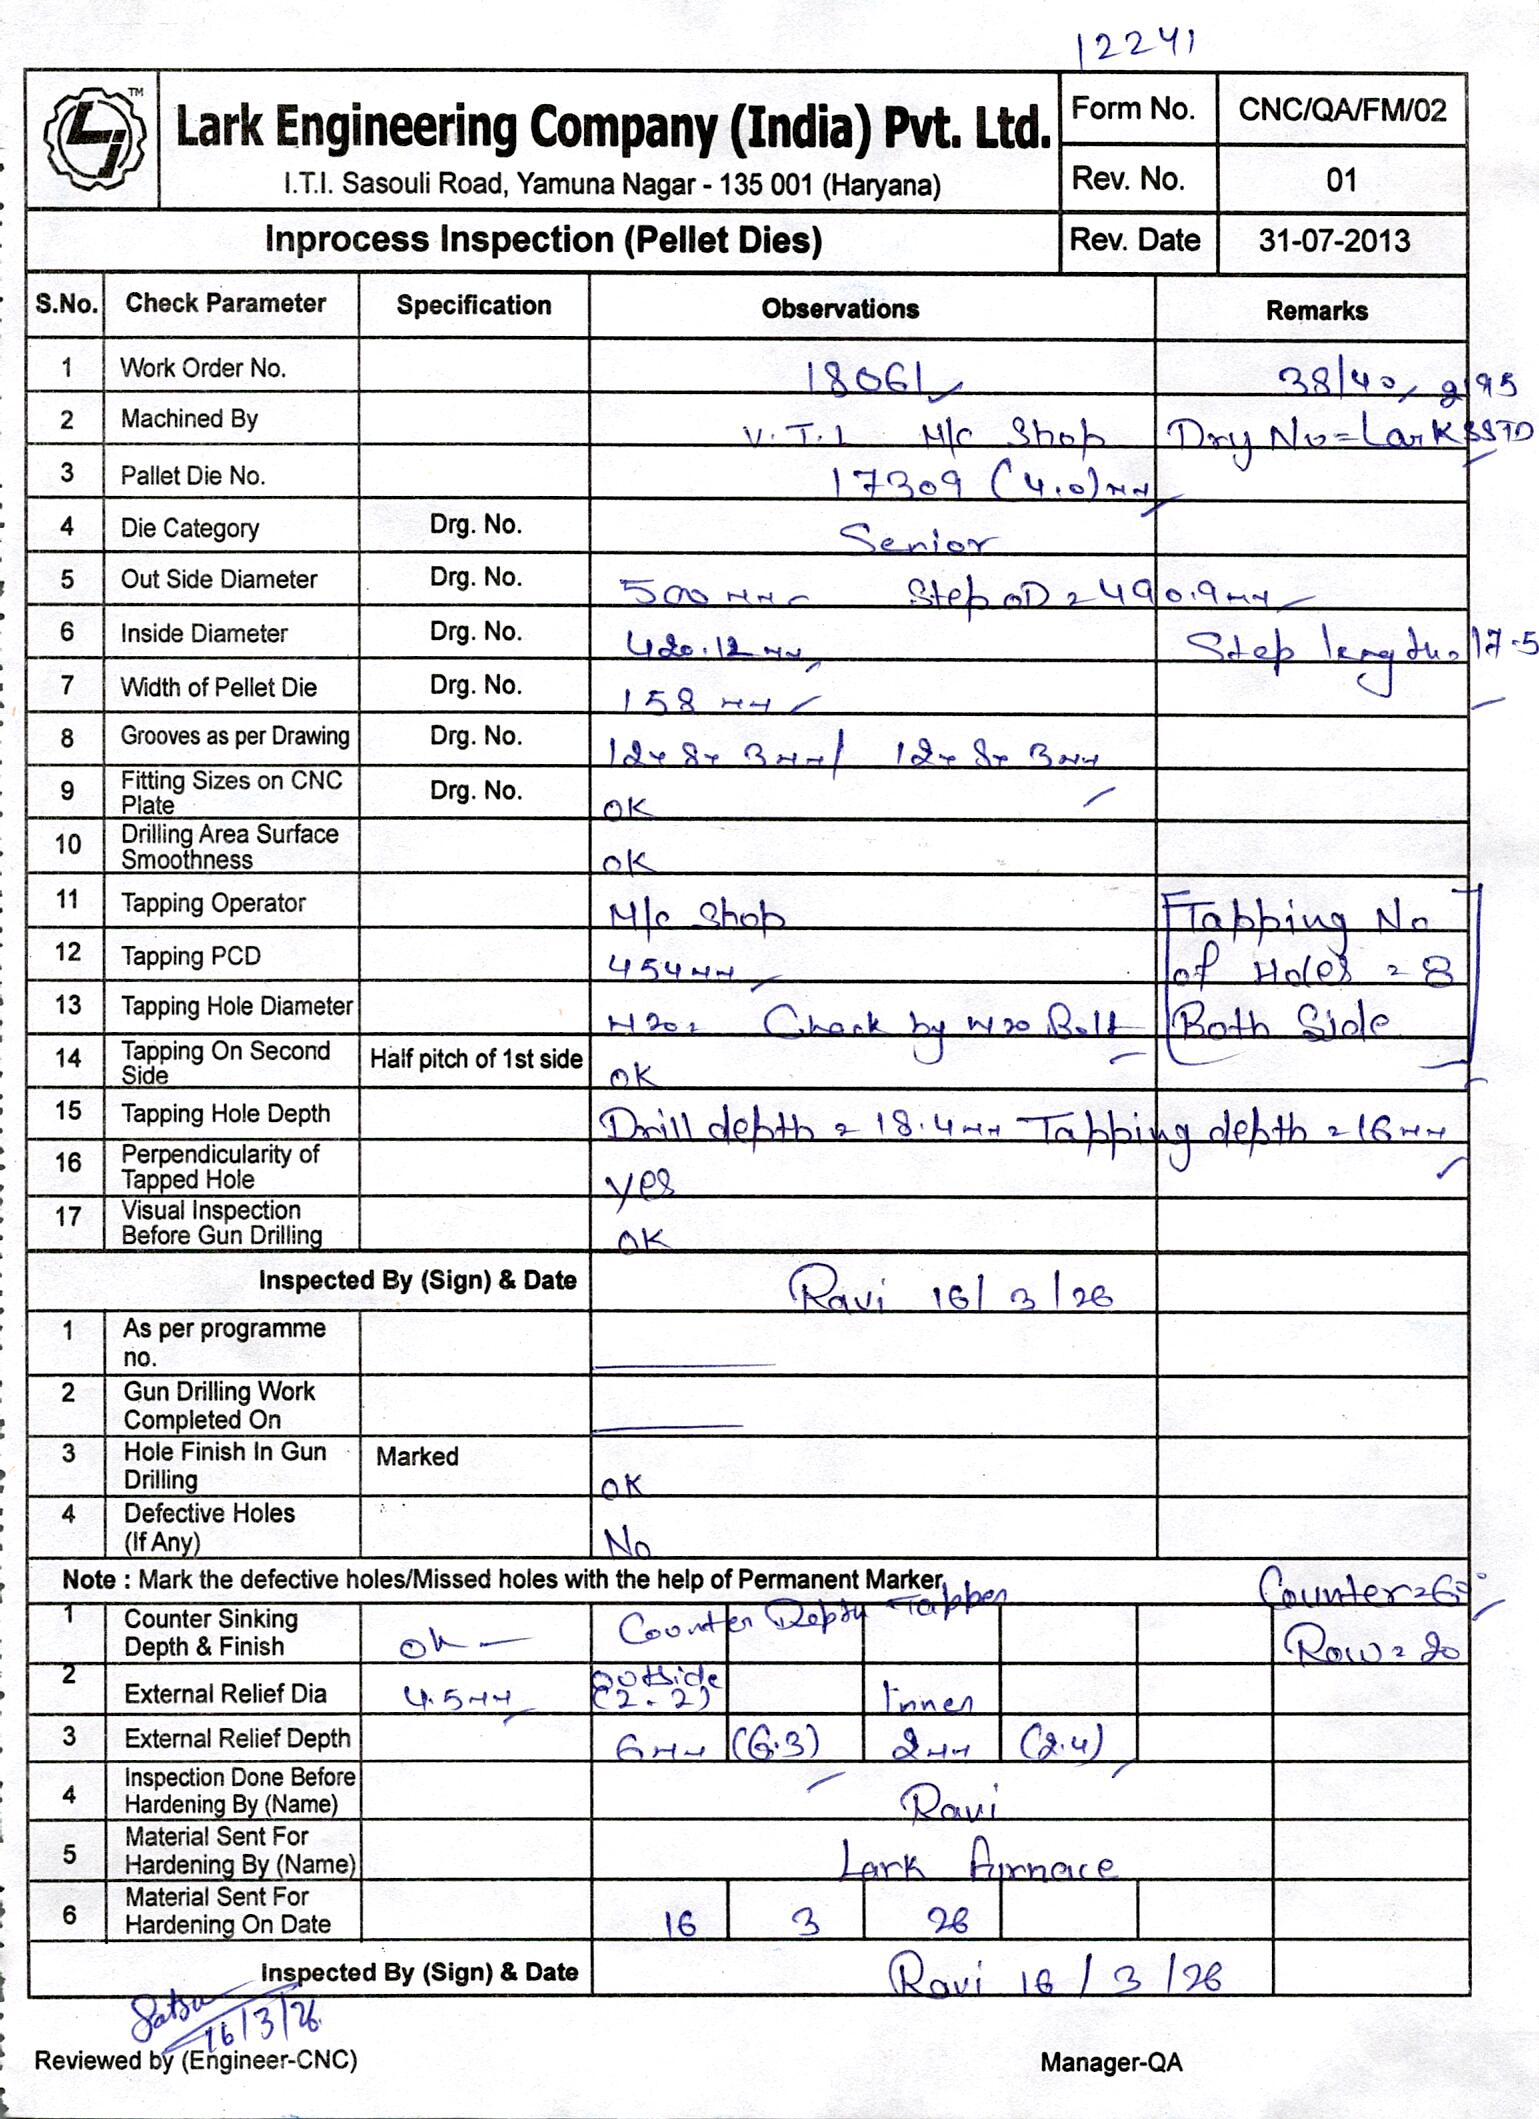 12241
TM
Lark Engineering Company (India) Pvt. Ltd.
I.T.I. Sasouli Road, Yamuna Nagar - 135 001 (Haryana)
Form No. CNC/QA/FM/02
Rev. No. 01
Inprocess Inspection (Pellet Dies)
Rev. Date 31-07-2013
S.No. Check Parameter Specification Observations Remarks
1 Work Order No. 18061 38/40
2 Machined By V.T.L M/c Shop
3 Pallet Die No. 17309 (4.0)mm
4 Die Category Drg. No. Senior
5 Out Side Diameter Drg. No. 500 mm Step OD = 490.9mm
6 Inside Diameter Drg. No. 420.12 mm Step length = 17.5
7 Width of Pellet Die Drg. No. 158 mm
8 Grooves as per Drawing Drg. No. 12x8x3mm / 12x8x3mm
9 Fitting Sizes on CNC Plate Drg. No. OK
10 Drilling Area Surface Smoothness OK
11 Tapping Operator M/c Shop Tapping No
12 Tapping PCD 454mm of Holes = 8
13 Tapping Hole Diameter M20 = Check by M20 Bolt Both Side
14 Tapping On Second Side Half pitch of 1st side OK
15 Tapping Hole Depth Drill depth = 18.4mm Tapping depth = 16mm
16 Perpendicularity of Tapped Hole yes
17 Visual Inspection Before Gun Drilling OK
Inspected By (Sign) & Date Ravi 16/3/26
1 As per programme no.
2 Gun Drilling Work Completed On
3 Hole Finish In Gun Drilling Marked OK
4 Defective Holes (If Any) No
Note : Mark the defective holes/Missed holes with the help of Permanent Marker. Counter = 60°
1 Counter Sinking Depth & Finish ok Counter Depth Tapper Row = 20
2 External Relief Dia 4.5mm outside (2.2) Inner
3 External Relief Depth 6mm (6.3) 2mm (2.4)
4 Inspection Done Before Hardening By (Name) Ravi
5 Material Sent For Hardening By (Name) Lark Furnace
6 Material Sent For Hardening On Date 16 3 26
Inspected By (Sign) & Date Ravi 16/3/26
16/3/26
Reviewed by (Engineer-CNC)
Manager-QA